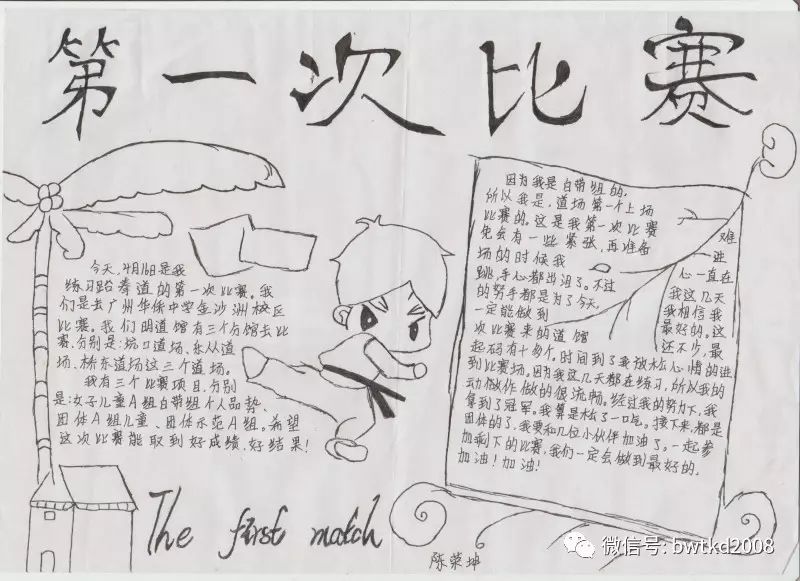 第一次比赛
今天,4月16日是我
练习跆拳道的第一次比赛。我
们是去广州华侨中学金沙洲校区
比赛。我们明道馆有三个分馆去比
赛,分别是:坑口道场、东从道
场、栋东道场这三个道场。
我有三个比赛项目,分别
是:女子儿童A组白带组个人品势、
团体A组儿童、团体示范A组。希望
这次比赛能取到好成绩,好结果!
因为我是白带组的,
所以我是,道场第一个上场
比赛的。这是我第一次比赛 难
免会有一些紧张,再准备 进
场的时候我 心一直在
跳,手心都出汗了。不过 我这几天
的努手都是为了今天, 我相信我
一定能做到 最好的。这
次比赛来的道馆 还不少,最
起码有十多个。时间到了我放松心情的进
到比赛场。因为我这几天都在练习,所以我的
动做作做的很流畅。经过我的努力下,我
拿到了冠军。我算是松了一口气。接下来,都是
团体的了,我要和几位小伙伴加油了。一起参
加剩下的比赛,我们一定会做到最好的,
加油!加油!
The first match
陈荣坤
微信号: bwtkd2008